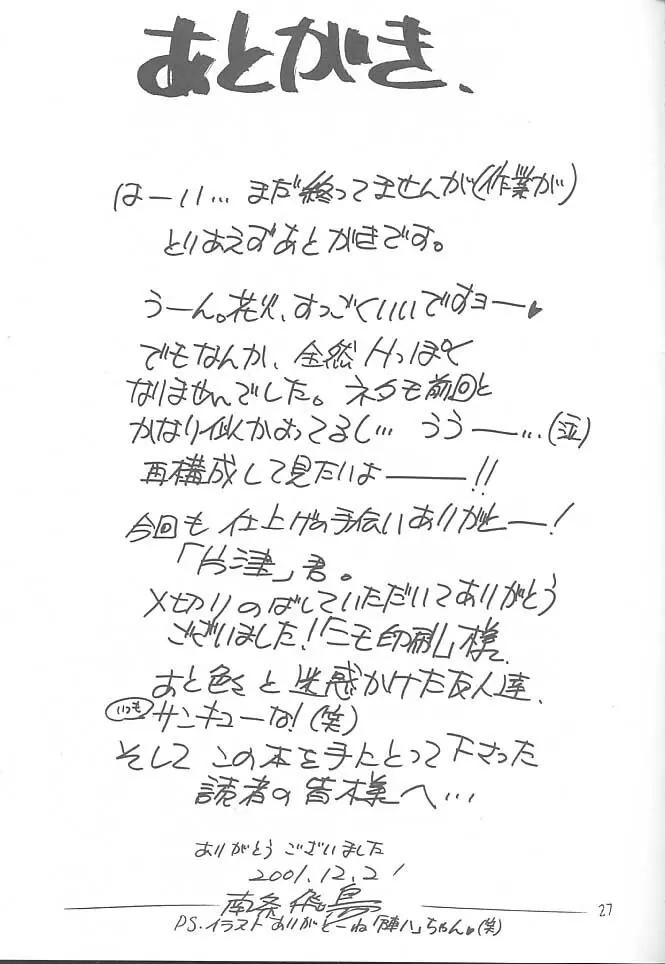 あとがき、
はーい… まだ終ってませんが(作業が)
とりあえずあとがきです。
うーん。花火、すっごくいいですョー♥
でもなんか、全然Hっぽく
なりませんでした。ネタも前回と
かなり似かよってるし… うう—…(泣)
再構成して見たいよ——!!
今回も 仕上げの手伝いありがとー!
「片津」君。
〆切りのばしていただいてありがとう
ございました!「ニモ印刷」様
あと色々と迷惑かけた友人達、
いつも サンキューな!(笑)
そして この本を手にとって下さった
読者の皆様へ…
ありがとう ございました
2001.12.21
南条飛鳥
27
PS.イラスト ありがとーね「陣八」ちゃん♥(笑)